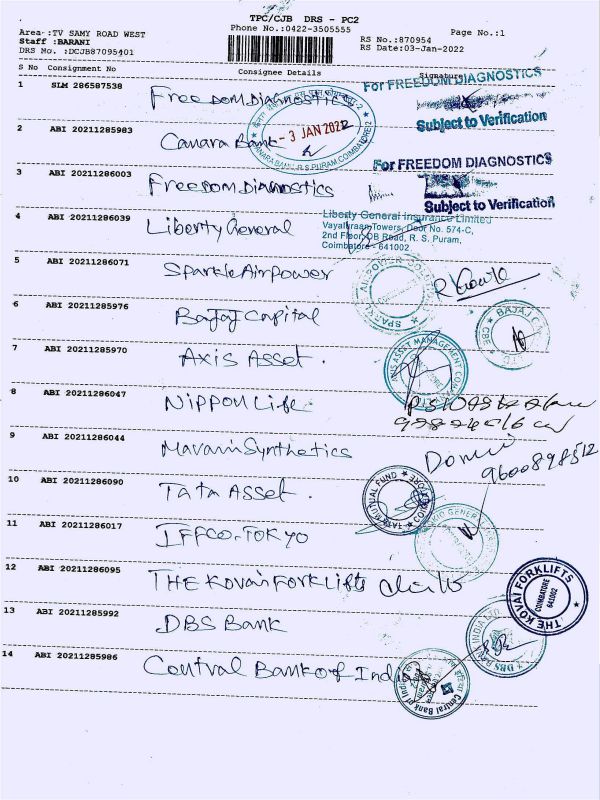 TPC/CJB DRS - PC2
Area :TV SAMY ROAD WEST
Phone No.:0422-3505555
Page No.:1
Staff :BARANI
RS No.:870954
DRS No. :DCJB87095401
RS Date:03-Jan-2022
S No Consignment No Consignee Details Signature
1 SLM 286587538 Freedom Diagnostics
For FREEDOM DIAGNOSTICS
Subject to Verification
2 ABI 20211285983 Canara Bank
- 3 JAN 2022
CANARA BANK, R.S PURAM, COIMBATORE
3 ABI 20211286003 Freedom Diagnostics
For FREEDOM DIAGNOSTICS
Subject to Verification
4 ABI 20211286039 Liberty General
Liberty General Insurance Limited
Vayallraan Towers, Door No. 574-C,
2nd Floor, DB Road, R. S. Puram,
Coimbatore - 641002
5 ABI 20211286071 Sparkle Airpower
6 ABI 20211285976 Bajaj Capital
BAJAJ
CBE
7 ABI 20211285970 Axis Asset.
AXIS ASSET MANAGEMENT
8 ABI 20211286047 Nippon Life
9 ABI 20211286044 Mavani Synthetics
9600898512
10 ABI 20211286090 Tata Asset.
TATA MUTUAL FUND
11 ABI 20211286017 IFFCO-TOKYO
12 ABI 20211286095 THE Kovai Forklifts
THE KOVAI FORKLIFTS
COIMBATORE
641002
13 ABI 20211285992 DBS Bank
DBS BANK INDIA LTD.
14 ABI 20211285986 Central Bank of India
Central Bank of India